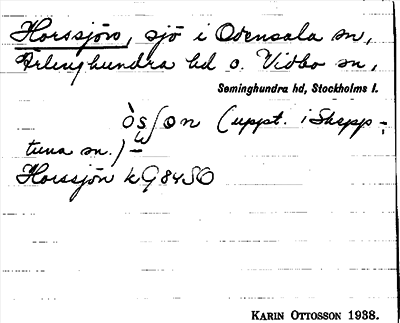 Horssjön, sjö i Odensala sn,
Ärlinghundra hd o. Vidbo sn,
Seminghundra hd, Stockholms l.
(uppt. i Skepp-
tuna sn.)
Horssjön kG84SO
KARIN OTTOSSON 1938.